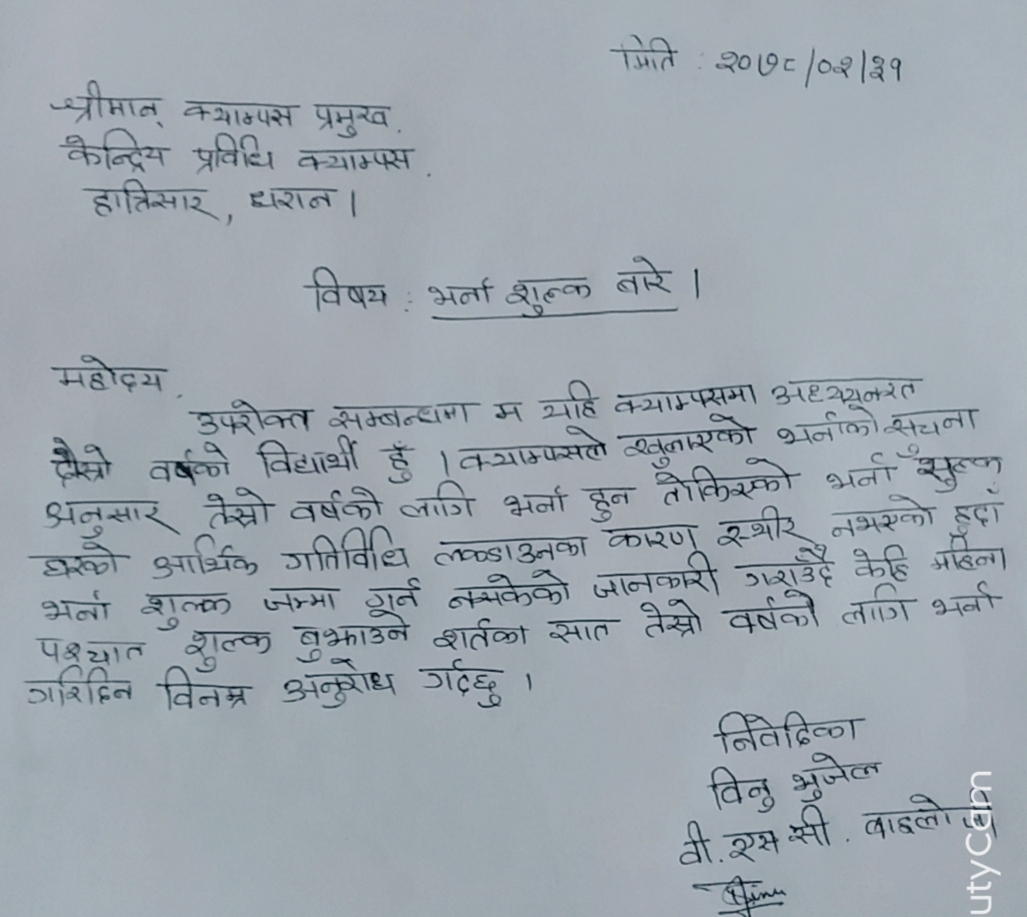 मिति : २०७८/०२/३१
श्रीमान् क्याम्पस प्रमुख,
केन्द्रिय प्रविधि क्याम्पस,
हात्तिसार, धरान।
विषय : भर्ना शुल्क बारे।
महोदय,
उपरोक्त सम्बन्धमा म यहि क्याम्पसमा अध्ययनरत
दोस्रो वर्षको विद्यार्थी हुँ। क्याम्पसले खुलाएको भर्नाको सूचना
अनुसार तेस्रो वर्षको लागि भर्ना हुन तोकिएको भर्ना शुल्क
घरको आर्थिक गतिविधि लकडाउनका कारण स्थीर नभएको हुदाँ
भर्ना शुल्क जम्मा गर्न नसकेको जानकारी गराउँदै केहि महिना
पश्चात शुल्क बुझाउने शर्तका सात तेस्रो वर्षको लागि भर्ना
गरिदिन विनम्र अनुरोध गर्दछु।
निवेदिका
विनु भुजेल
वी. एस सी. वाइलोजी
Binu
utyCam